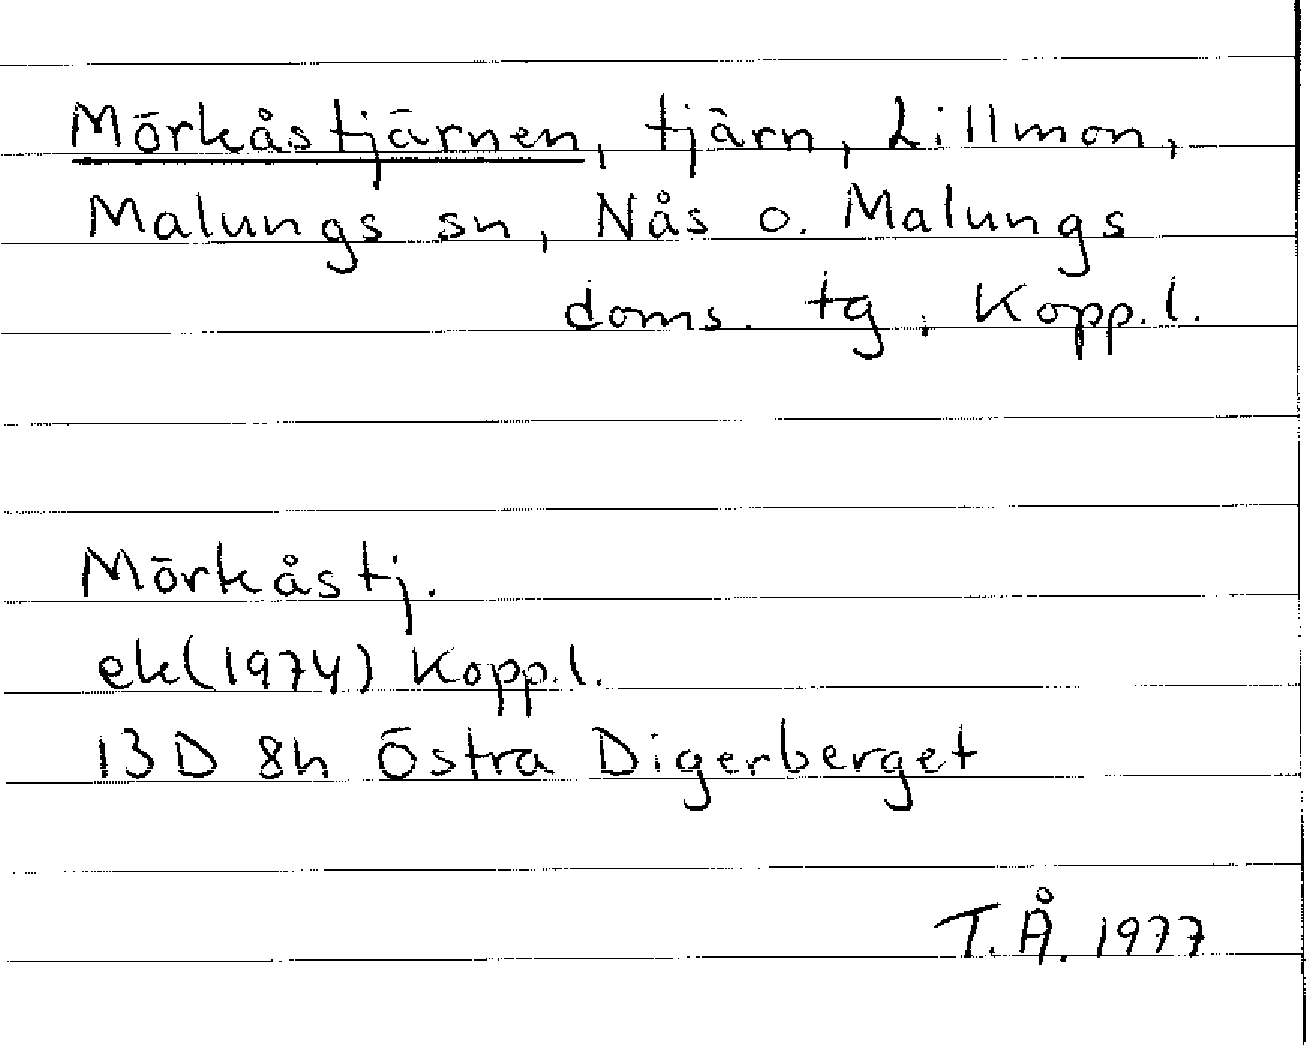 Mörkåstjärnen, tjärn, Lillmon,
Malungs sn, Nås o. Malungs
doms. tg, Kopp. l.
Mörkåstj.
ek(1974) Kopp.l.
13D 8h Östra Digerberget
T.Å. 1977